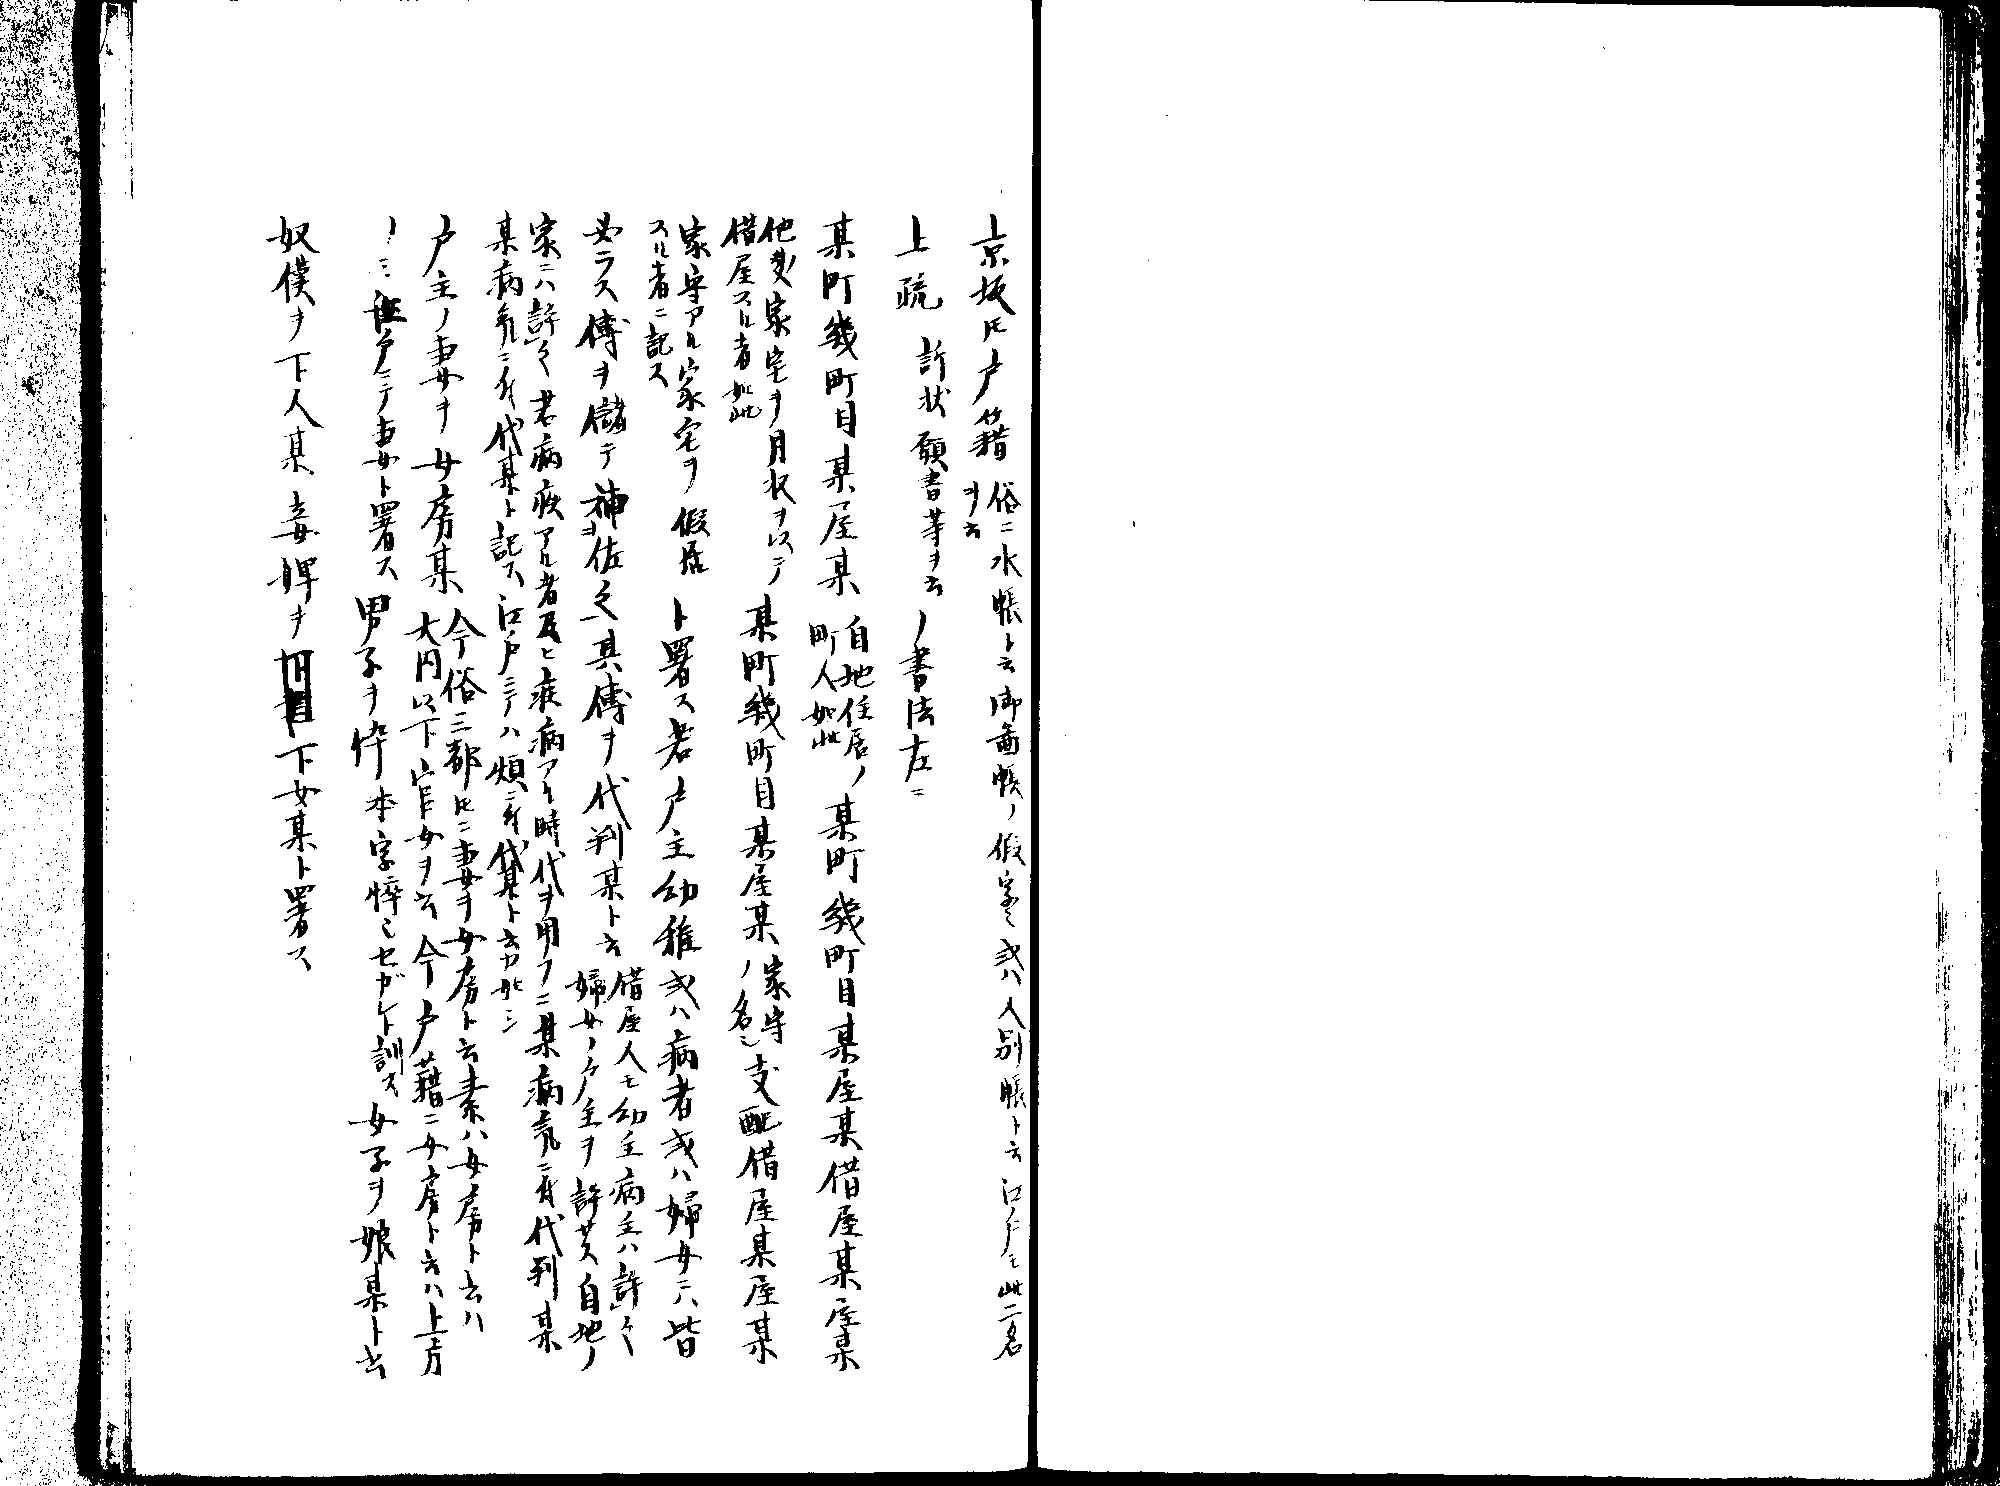 京坂トモ戸籍 俗ニ水帳ト云御圖帳ノ假字也或ハ人別帳ト云江戸モ此二名
ヲ云
上疏 訴状願書等ヲ云 ノ書法左ニ
某町幾町目某屋某 自地住居ノ
町人如此 某町幾町目某屋某借屋某屋某
他ノ家宅ヲ月収ヲ以テ
借屋スル者如此 某町幾町目某屋某 家守
ノ名也 支配借屋某屋某
家守アル家宅ヲ假居
スル者ニ記ス ト署ス若戸主幼稚或ハ病者或ハ婦女ニハ皆
必ラス傅ヲ儲テ補佐ス其傅ヲ代判某ト云 借屋人モ幼主病主ハ許之
婦女ノ戸主ヲ許サス自地ノ
家ニハ許之 若病疾アル者及ヒ疾病アル時代ヲ用フニ某病氣ニ付代判某
某病氣ニ付代某ト記ス江戸ニテハ煩ニ付代某ト云カ如シ
戸主ノ妻ヲ女房某 今俗三都トモニ妻ヲ女房ト云素ハ女房ト云ハ
大内以下官女ヲ云今戸籍ニ女房ト云ハ上方
ノミ江戸ニテ妻ト署ス 男子ヲ忰 本字悴也セガレト訓ス 女子ヲ娘某ト云
奴僕ヲ下人某婢ヲ下女某ト署ス